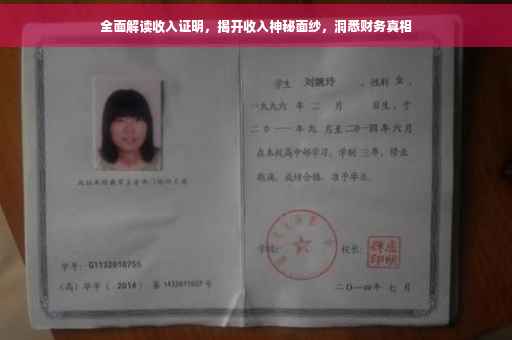 全面解读收入证明，揭开收入神秘面纱，洞悉财务真相
学生 刘婉玲 ，性别 女 ，
一九九六 年 二 月 日生，于
二0一一年九 月至二0一四年 六月
在本校高中部学习，学制 三年，修业
期满，成绩合格，准予毕业。
学校： 校长：
学号：G1132010755
(高) 毕字 ( 2014 ) 第 1432011027 号
二〇一四年 七 月